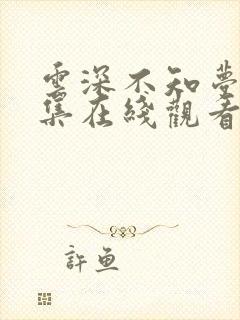 雲深不知夢
集在綫觀看
許魚